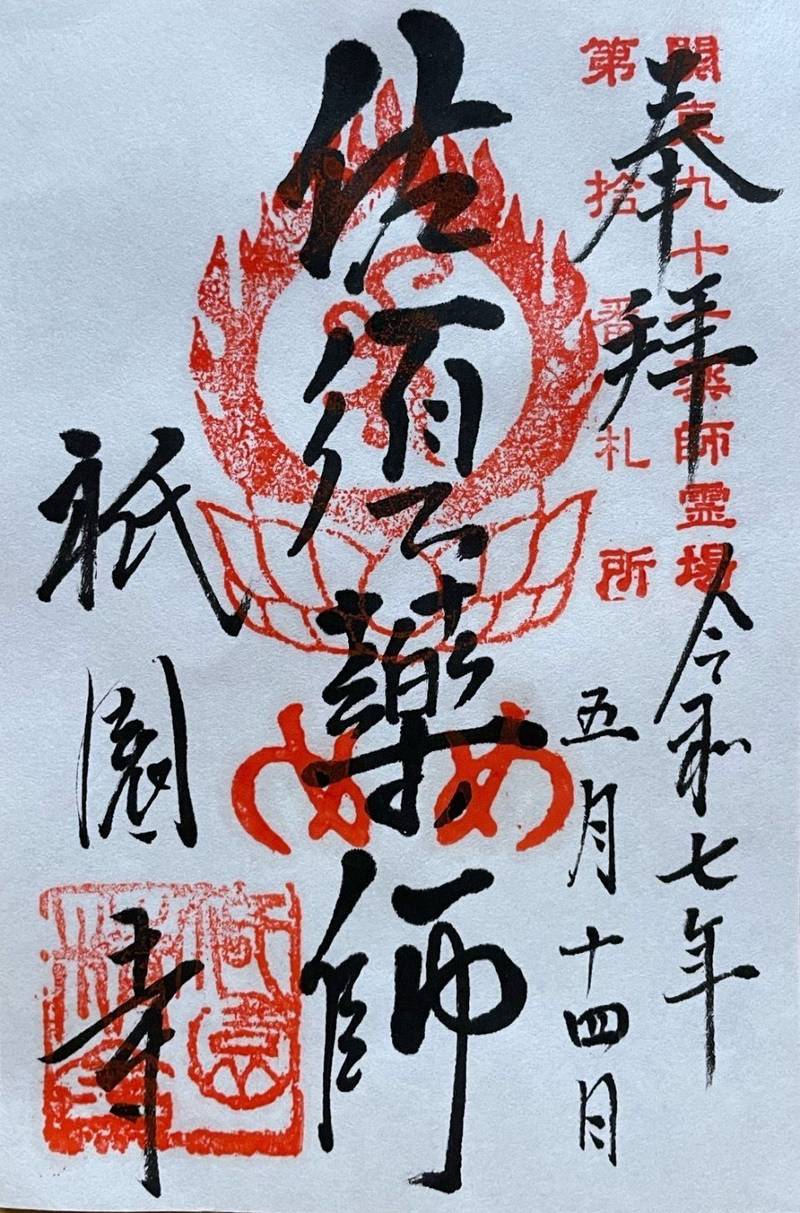 関東九十一薬師霊場
第拾番札所
奉拝
令和七年
五月十四日
佐須薬師
め め
祇園寺